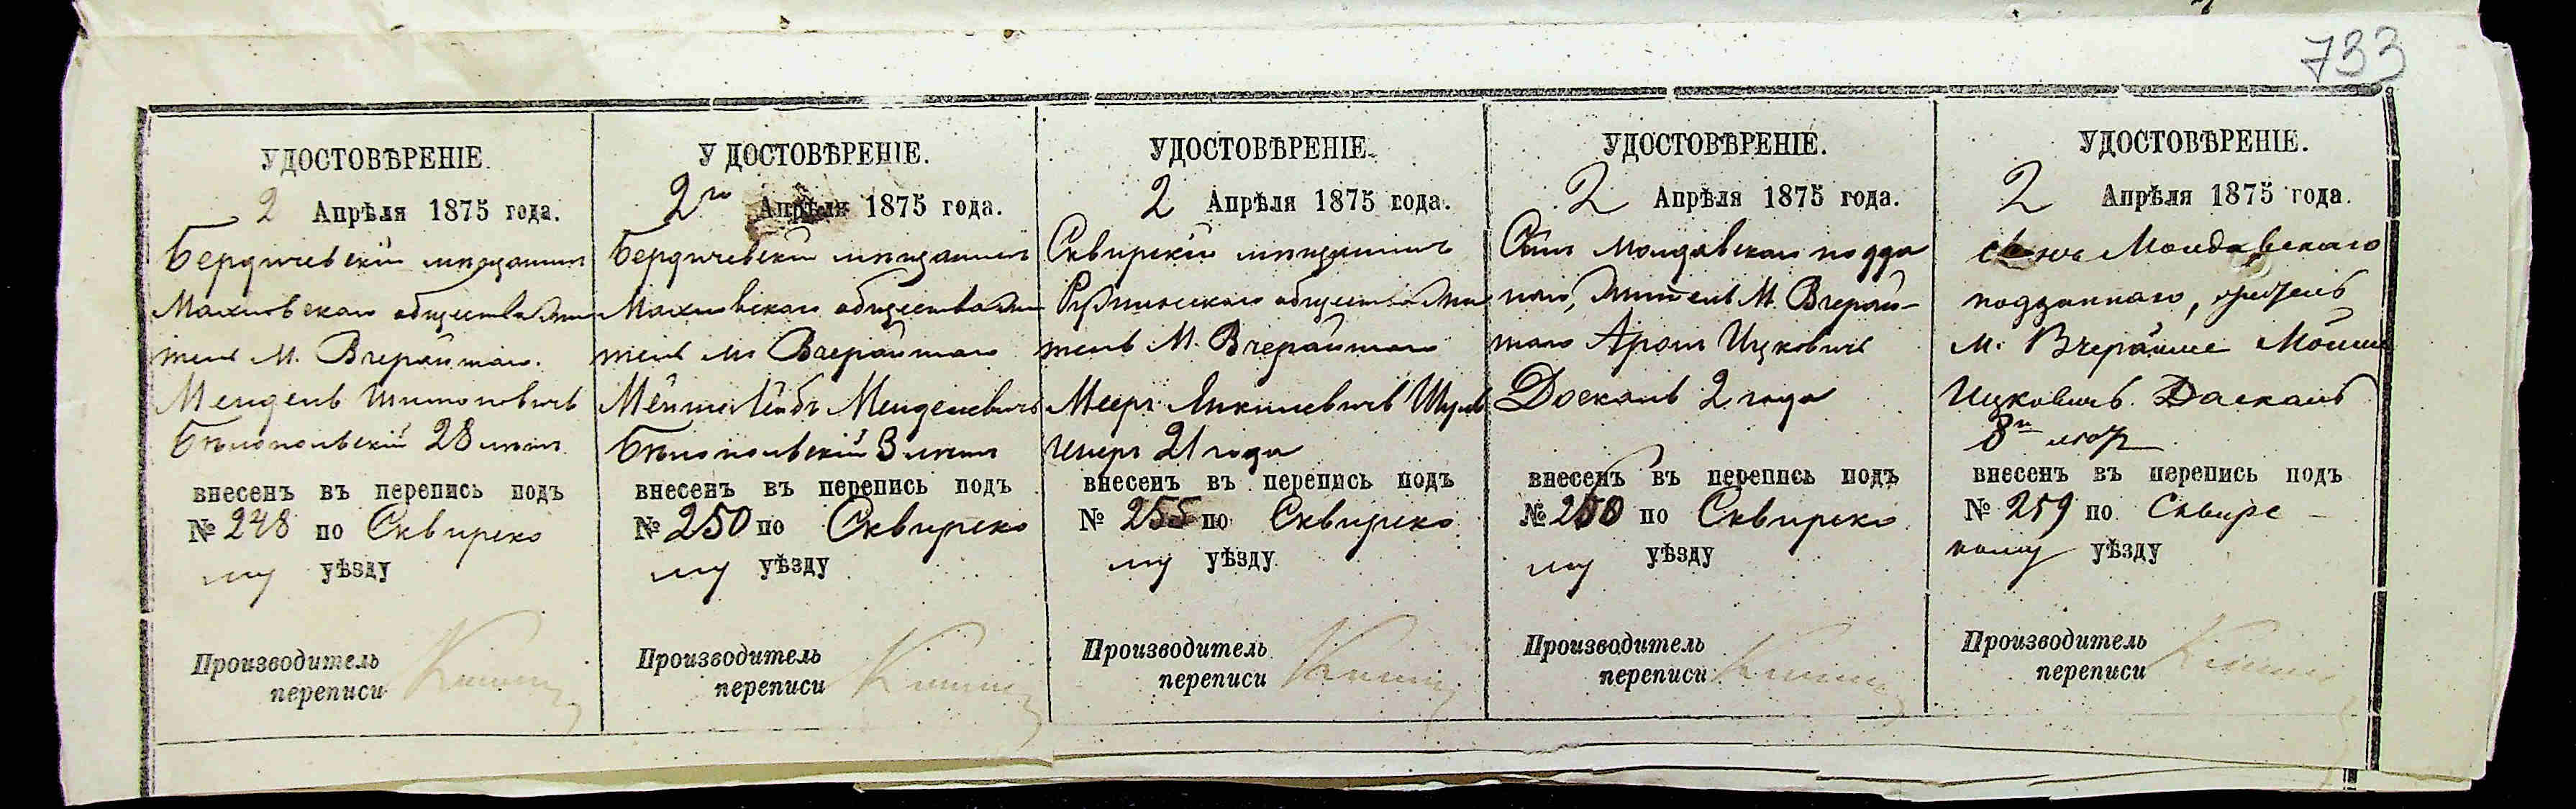 733
УДОСТОВѢРЕНІЕ.
2 Апрѣля 1875 года.
Бердичевскій мѣщанинъ
Махновскаго общества жи
тель М. Вчерайшаго.
Мендель Шимоновичъ
Бѣлопольскій 28 лѣтъ
внесенъ въ перепись подъ
№ 248 по Сквирско
му уѣзду
Производитель
переписи
УДОСТОВѢРЕНІЕ.
2го Апрѣля 1875 года.
Бердичевскій мѣщанинъ
Махновскаго общества жи
тель м. Вчерайшаго
Лейба Менделевичъ
Бѣлопольскій 3 лѣтъ
внесенъ въ перепись подъ
№ 250 по Сквирско
му уѣзду
Производитель
переписи
УДОСТОВѢРЕНІЕ.
2 Апрѣля 1875 года.
Сквирскій мѣщанинъ
Ружинскаго общества жи
тель М. Вчерайшаго
Мееръ Янкелевичъ
21 года
внесенъ въ перепись подъ
№ 255 по Сквирско
му уѣзду
Производитель
переписи
УДОСТОВѢРЕНІЕ.
2 Апрѣля 1875 года.
Сынъ Молдавскаго подда
наго, житель М. Вчерай-
шаго Аронъ Ицковичъ
Доскаль 2 года
внесенъ въ перепись подъ
№ по Сквирско
му уѣзду
Производитель
переписи
УДОСТОВѢРЕНІЕ.
2 Апрѣля 1875 года.
сынъ Молдавскаго
подданнаго, житель
м. Вчерайше Мойше
Ицковичъ Даскаль
8
внесенъ въ перепись подъ
№ 259 по Сквирс-
кому уѣзду
Производитель
переписи